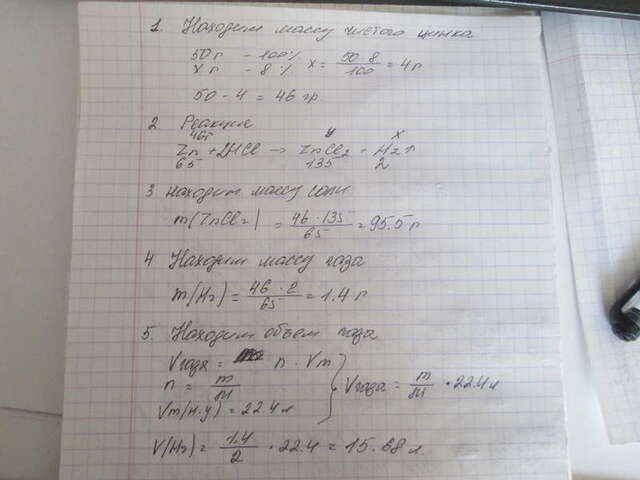 1. Находим массу чистого цинка
50 г - 100%
x г - 8% x = 50 · 8 / 100 = 4 г
50 - 4 = 46 гр
2. Реакция
46г y x
Zn + 2HCl → ZnCl2 + H2↑
65 135 2
3 находим массу соли
m(ZnCl2) = 46 · 135 / 65 = 95.5 г
4 Находим массу газа
m(H2) = 46 · 2 / 65 = 1.4 г
5. Находим объем газа
Vгаза = n · Vm
n = m / M } Vгаза = m / M · 22.4 л
Vm(н.у) = 22.4 л
V(H2) = 1.4 / 2 · 22.4 = 15.68 л